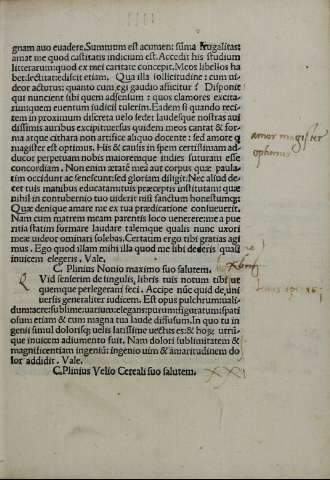 gnam auo euadere. Summum est acumen: summa frugalitas:
amat me quod castitatis indicium est. Accedit his studium
litterarum: quod ex mei caritate concepit. Meos libellos ha
bet: lectitat: ediscit etiam. Qua illa sollicitudine: cum ui-
deor acturus: quanto cum egi gaudio afficitur? Disponit
qui nuncient sibi quem adsensum: quos clamores excita-
rim: quem euentum iudicii tulerim. Eadem si quando reci-
tem in proximum discreta uelo sedet: laudesque nostras aui
dissimis auribus excipit: uersus quidem meos cantat & for-
ma atque cithara non artifice aliquo docente: sed amore q
magister est optimus. His & causis in spem certissimam ad-
ducor perpetuam nobis maioremque indies futuram esse
concordiam. Non enim ætatē meā aut corpus quæ paula-
tim occidunt ac senescunt: sed gloriam diligit. Nec aliud de-
cet tuis manibus educatam: tuis præceptis institutam: quæ
nihil in contubernio tuo uiderit nisi sanctum honestumq;
Quæ denique amare me ex tua prædicatione consueuerit.
Nam cum matrem meam parentis loco uenerere: me a pue
ritia statim formare laudare talemque qualis nunc uxori
meæ uideor ominari solebas. Certatim ergo tibi gratias agi
mus. Ego quod illam mihi illa quod me sibi dederis quasi
inuicem elegeris. Vale.
C. Plinius Nonio maximo suo salutem.
Vid senserim de singulis, libris tuis notum tibi ut
quemque perlegerani feci. Accipe nūc quid de uni
uersis generaliter iudicem. Est opus pulchrum: uali-
dum: acre: sublime: uarium: elegans: purum: figuratum: spati
osum etiam & cum magna tua laude diffusum. In quo tu in
genii simul dolorisq; uelis latissime uectus es: & hoꝝ utrū-
que inuicem adiumento fuit. Nam dolori sublimitatem &
magnificentiam ingeniū: ingenio uim & amaritudinem do
lor addidit. Vale.
C. Plinius Velio Cereali suo salutem.
amor magister
optimus
XXI